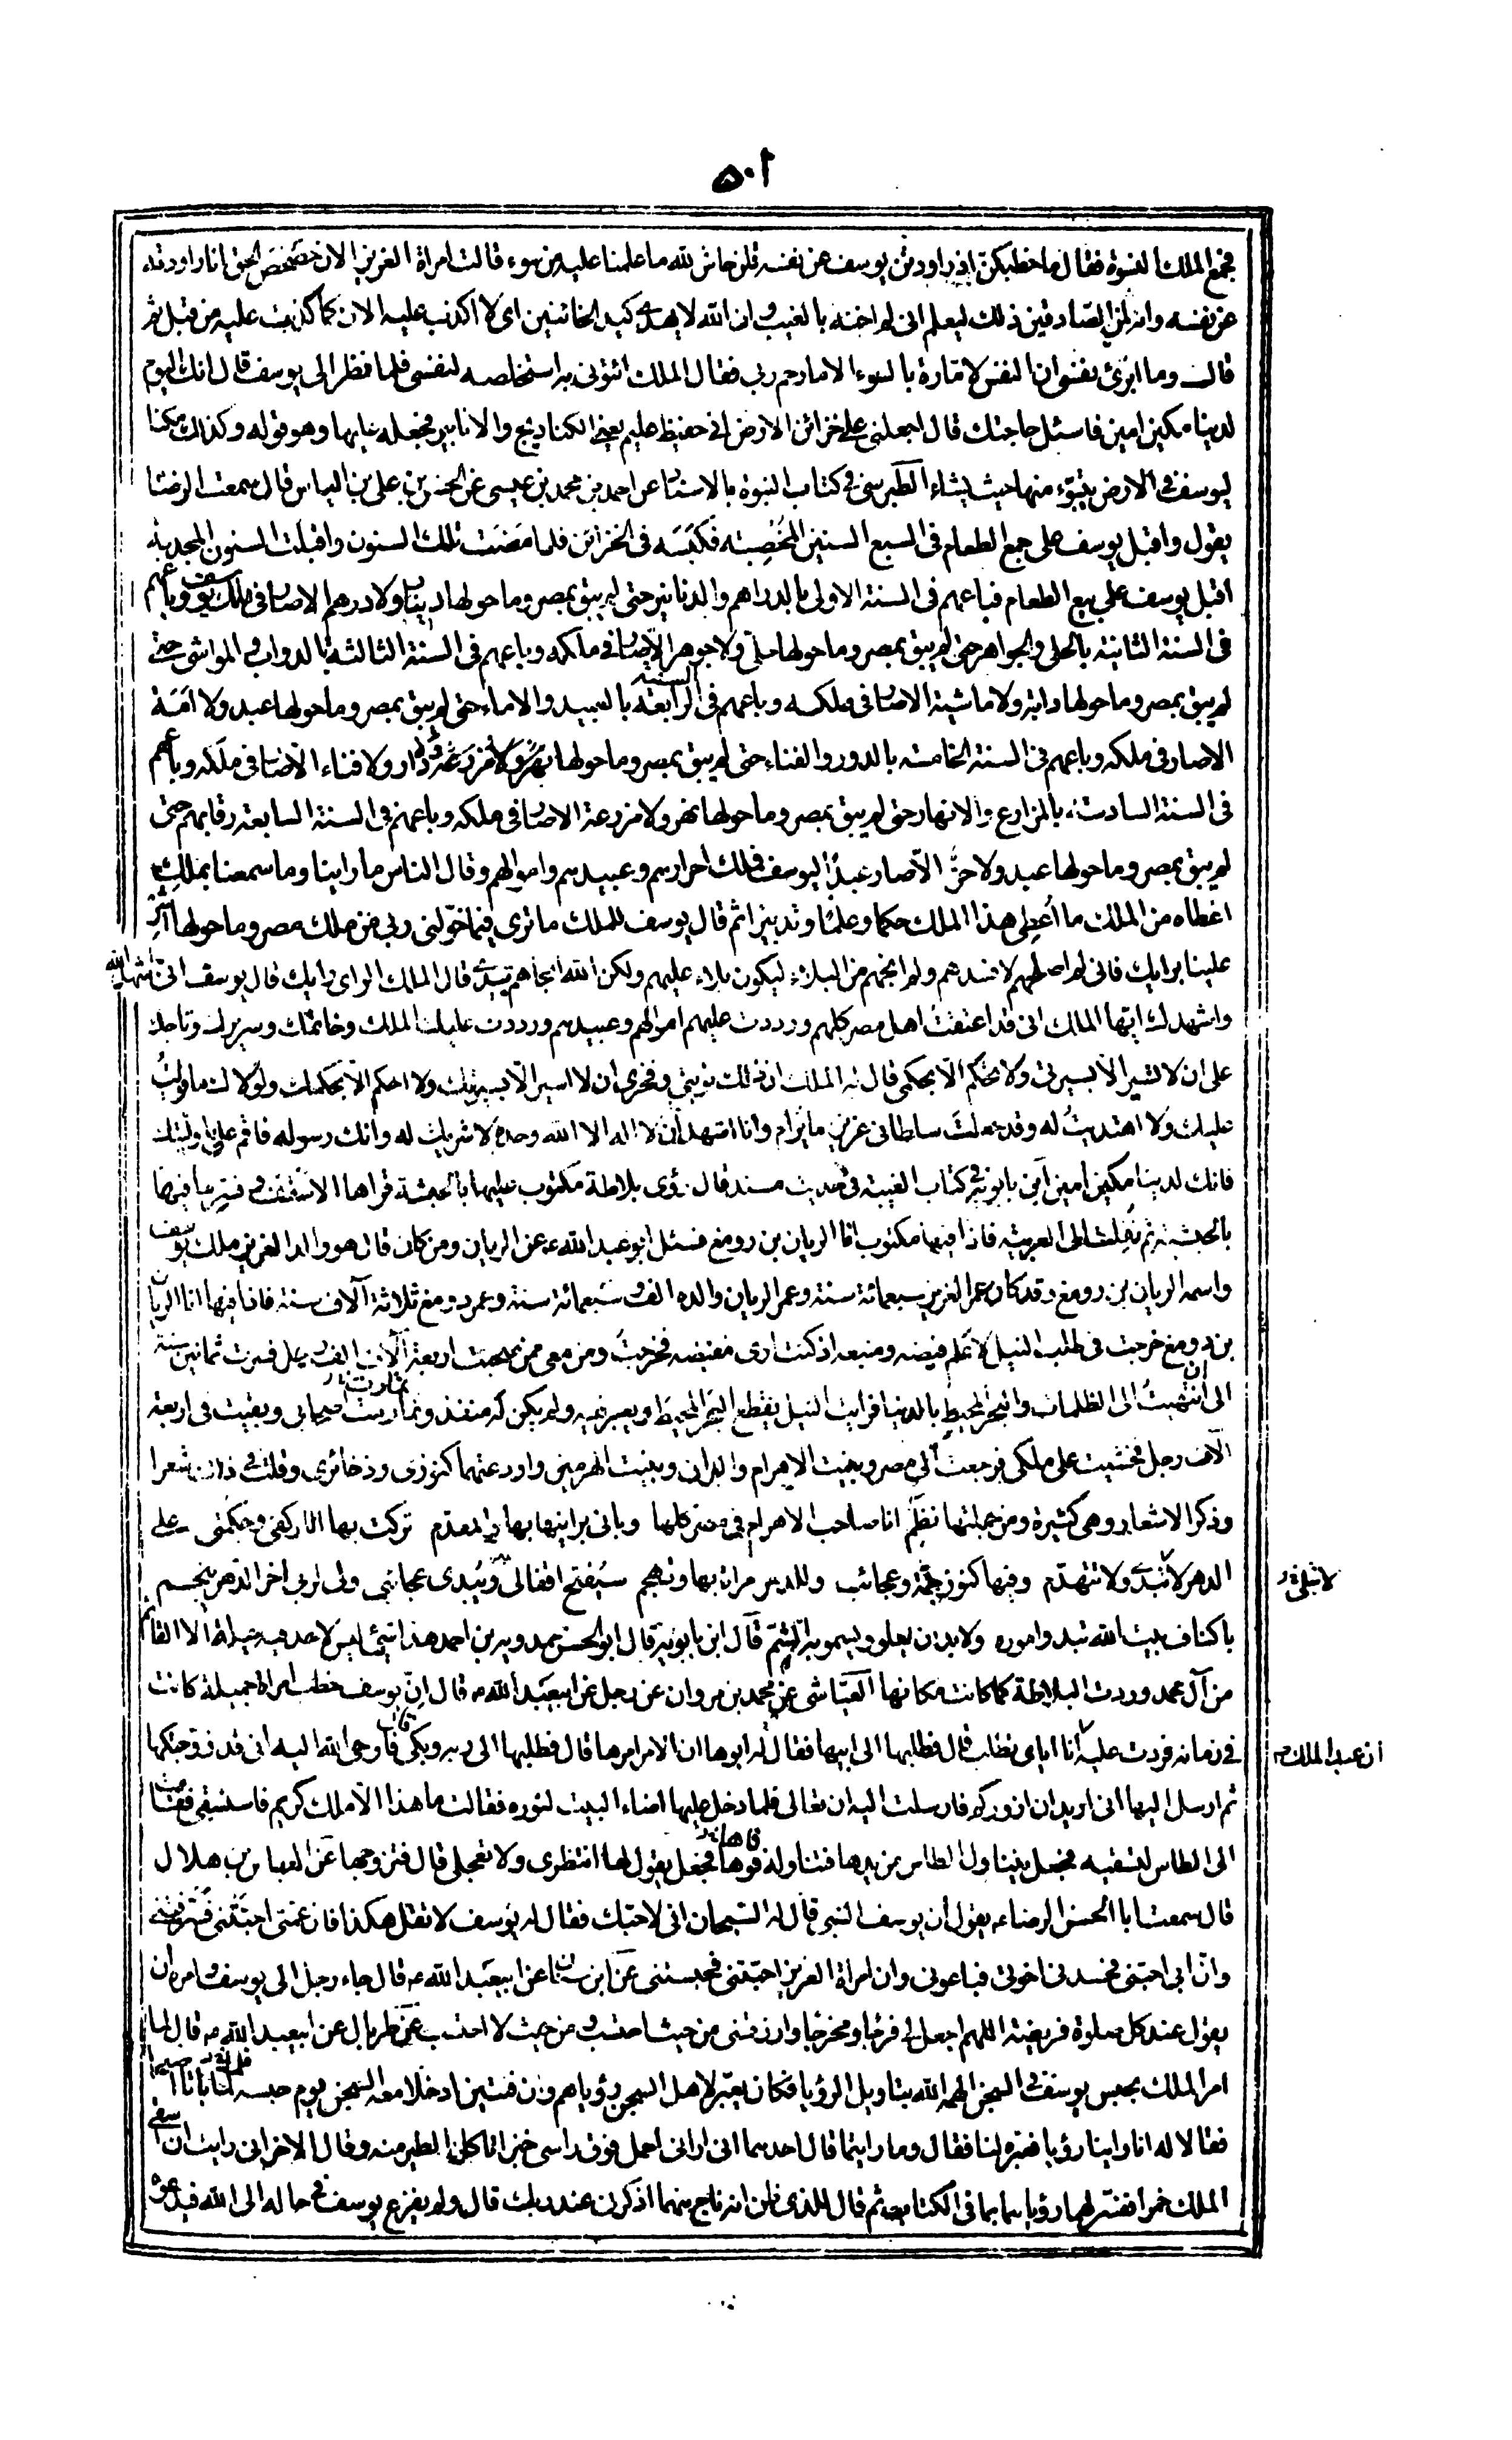 ٥٠١
فجمع الملك النسوة فقال ما خطبكن اذ راودتن يوسف عن نفسه قلن حاش لله ما علمنا عليه من سوء قالت امراة العزيز الان حصحص الحق انا راودته
عن نفسه وانه لمن الصادقين ذلك ليعلم انى لم اخنه بالغيب وان الله لا يهدى كيد الخائنين اى لا اكذب عليه الان كما كذبت عليه من قبل ثم
قالت وما ابرئ نفسى ان النفس لامارة بالسوء الا ما رحم ربى فقال الملك ائتونى به استخلصه لنفسى فلما نظر الى يوسف قال انك اليوم
لدينا مكين امين فاسئل حاجتك قال اجعلنى على خزائن الارض انى حفيظ عليم يعنى الكناديج والانابير فجعله عليها وهو قوله وكذلك مكنا
ليوسف فى الارض يتبوء منها حيث يشاء الطبرسى فى كتاب النبوة بالاسناد عن احمد بن محمد بن عيسى عن الحسن بن على بن الياس قال سمعت الرضا
يقول واقبل يوسف على جمع الطعام فى السبع السنين المخصبة فكبسه فى الخزائن فلما مضت تلك السنون واقبلت السنون المجدبة
اقبل يوسف على بيع الطعام فباعهم فى السنة الاولى بالدراهم والدنانير حتى لم يبق بمصر وما حولها دينار ولا درهم الا صار فى ملك يوسف وباعهم
فى السنة الثانية بالحلى والجواهر حتى لم يبق بمصر وما حولها حلى ولا جوهر الا صار فى ملكه وباعهم فى السنة الثالثة بالدواب والمواشى حتى
لم يبق بمصر وما حولها دابة ولا ماشية الا صار فى ملكه وباعهم فى السنة الرابعة بالعبيد والاماء حتى لم يبق بمصر وما حولها عبد ولا امة
الا صار فى ملكه وباعهم فى السنة الخامسة بالدور والفناء حتى لم يبق بمصر وما حولها دار ولا فناء الا صار فى ملكه وباعهم
فى السنة السادسة بالمزارع والانهار حتى لم يبق بمصر وما حولها نهر ولا مزرعة الا صار فى ملكه وباعهم فى السنة السابعة رقابهم حتى
لم يبق بمصر وما حولها عبد ولا حر الا صار عبدا ليوسف فملك احرارهم وعبيدهم واموالهم وقال الناس ما راينا وما سمعنا بملك
اعطاه من الملك ما اعطى هذا الملك حكما وعلما وتدبيرا ثم قال يوسف للملك ما ترى فيما خولنى ربى من ملك مصر وما حولها اشر
علينا برايك فانى لم اصلحهم لافسدهم ولم انجهم من البلاء ليكون بلاء عليهم ولكن الله انجاهم بيدى قال الملك الراى رايك قال يوسف انى اشهد الله
واشهدك ايها الملك انى قد اعتقت اهل مصر كلهم ورددت عليهم اموالهم وعبيدهم ورددت عليك الملك وخاتمك وسريرك وتاجك
على ان لا تسير الا بسيرتى ولا تحكم الا بحكمى قال له الملك ان ذلك توبتى وفخرى ان لا اسير الا بسيرتك ولا احكم الا بحكمك ولولاك ما قويت
عليك ولا اهتديت له وقد جعلت سلطانى عزيز ما يرام وانا اشهد ان لا اله الا الله وحده لا شريك له وانك رسوله فاقم على ما وليتك
فانك لدينا مكين امين ابن بابويه فى كتاب الغيبة فى حديث مسند قال رؤى بلاطة مكتوب عليها بالحبشة قراها الاسقف وفسر ما فيها
بالحبشية ثم نقلت الى العربية فاذا فيها مكتوب انا الريان بن دومغ فسئل ابو عبد الله ع عن الريان ومن كان قال هو والد العزيز ملك يوسف
واسمه الريان بن دومغ وقد كان عمر العزيز سبعمائة سنة وعمر الريان والده الف وسبعمائة سنة وعمر دومغ ثلاثة آلاف سنة فاذا فيها انا الريان
بن دومغ خرجت فى طلب النيل لاعلم فيضه ومنبعه اذ كنت ارى مفيضه فخرجت ومن معى ممن صحبت اربعة آلاف الف رجل فسرت ثمانين سنة
الى ان انتهيت الى الظلمات والبحر المحيط بالدنيا فرايت النيل يقطع البحر المحيط ويعبر فيه ولم يكن له منفذ وتماوت اصحابى وبقيت فى اربعة
آلاف رجل فخشيت على ملكى فرجعت الى مصر وبنيت الاهرام والبرانى وبنيت الهرمين واودعتهما كنوزى وذخائرى وقلت فى ذلك شعرا
وذكر الاشعار وهى كثيرة ومن جملتها نظم انا صاحب الاهرام فى مصر كلها وبانى برانيها بها والمقدم تركت بها اثار كفى وحكمتى على
الدهر لا تبلى ولا تتهدم وفيها كنوز جمة وعجائب وللدهر مراة بها وتهجم سيفتح اقفالى ويبدى عجائبى ولى لربى اخر الدهر ينجم
لا تبلى
باكناف بيت الله تبدو اموره ولا بد ان يعلو ويسمو به السم قال ابن بابويه قال ابو الحسن حمدويه بن احمد هذا شئ ليس لاحد فيه حيلة الا القائم
من آل محمد وردت البلاطة كما كانت مكانها العياشى عن محمد بن مروان عن رجل عن ابيعبد الله ع قال ان يوسف خطب امراة جميلة كانت
فى زمانه فردت عليه انا اياى يخطب قال فطلبها الى ابيها فقال له ابوها ان الامر امرها قال فطلبها الى ربه وبكى فاوحى الله اليه انى قد زوجتكها
ان عبد الملك
ثم ارسل اليها انى اريد ان ازوركم فارسلت اليه ان تعال فلما دخل عليها اضاء البيت لنوره فقالت ما هذا الا ملك كريم فاستسقى فقامت
الى الطاس لتسقيه فجعل يتناول الطاس من يدها فتناوله فوها فجعل يقول لها انتظرى ولا تعجلى قال فتزوجها عن العباس بن هلال
قال سمعت ابا الحسن الرضا ع يقول ان يوسف النبى قال له السجان انى لاحبك فقال له يوسف لا تقل هكذا فان عمتى احبتنى فسرقتنى
وان ابى احبنى فحسدنى اخوتى فباعونى وان امراة العزيز احبتنى فحبستنى عن ابن سنان عن ابيعبد الله ع قال جاء رجل الى يوسف وامره ان
يقول عند كل صلوة فريضة اللهم اجعل لى فرجا ومخرجا وارزقنى من حيث احتسب ومن حيث لا احتسب عن طربال عن ابيعبد الله ع قال لما
امر الملك بحبس يوسف فى السجن الهمه الله بتاويل الرؤيا فكان يعبر لاهل السجن رؤياهم وان فتيين ادخلا معه السجن يوم حبسه لما باتا اصبحا
فقالا له انا راينا رؤيا فعبره لنا فقال وما رايتما قال احدهما انى ارانى احمل فوق راسى خبزا تاكل الطير منه وقال الاخر انى رايت ان اسقى
الملك خمرا ففسر لهما رؤياهما بما فى الكتاب ثم قال للذى ظن انه ناج منهما اذكرنى عند ربك قال ولم يفزع يوسف فى حاله الى الله فيدعوه